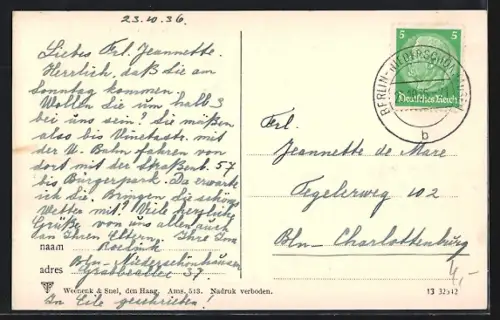 23.10.36.
Liebes Frl. Jeannette.
Herrlich, daß Sie am
Sonntag kommen.
Wollen Sie um halb 3
bei uns sein? Sie müßen
also bis Vinetastr. mit
der U. Bahn fahren von
dort mit der Straßenb. 57
bis Bürgerpark. Da erwarte
ich Sie. Bringen Sie schönes
Wetter mit! Viele herzliche
Grüße von uns allen auch
an Ihren Eltern. Ihre
naam
Bln-Niederschönhausen
adres Grabbeallee 37
In Eile geschrieben!
Weenenk & Snel, den Haag. Ams. 513. Nadruk verboden.
5 5
Deutsches Reich
BERLIN-NIEDERSCHÖNHAUSEN
b
Frl.
Jeannette de Mare
Tegelerweg 102
Bln-Charlottenburg
4,-
13 32512